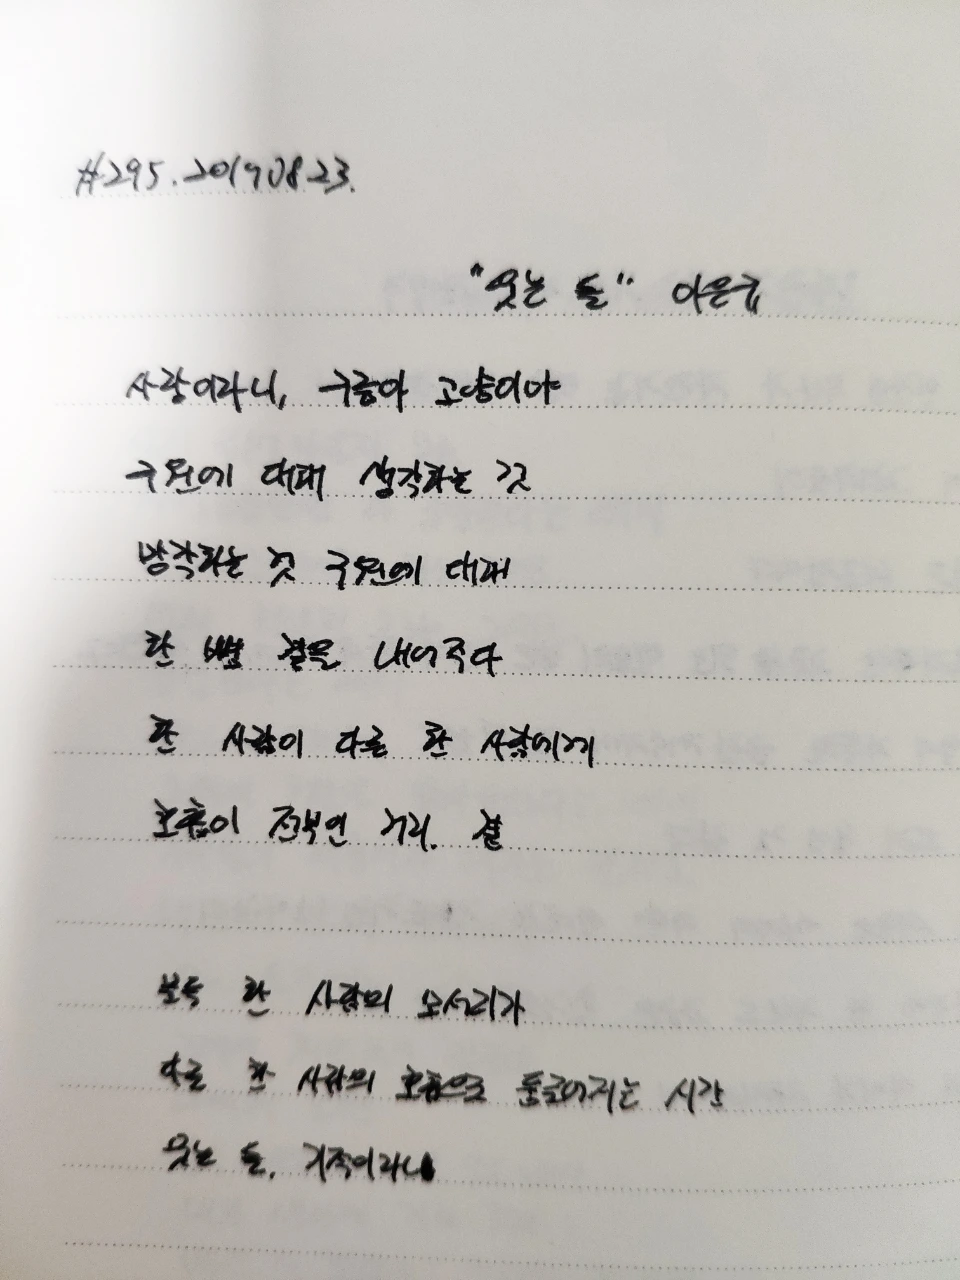 #295. 20190823.
"웃는 돌" 이은규
사랑이라니, 구름아 고양이야
구원에 대해 생각하는 것
망각하는 것 구원에 대해
한 뼘 곁을 내어주다
한 사람이 다른 한 사람에게
호흡이 전부인 거리. 곁
문득 한 사람의 모서리가
다른 한 사람의 호흡으로 둥글어지는 시간
웃는 돌, 기적이라니